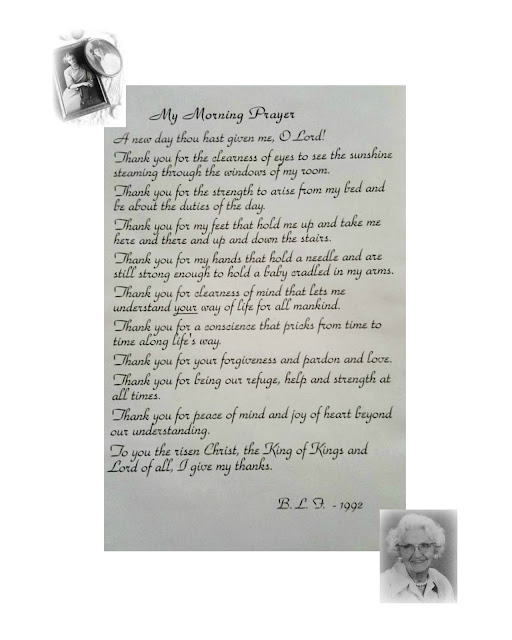 My Morning Prayer
A new day thou hast given me, O Lord!
Thank you for the clearness of eyes to see the sunshine
steaming through the windows of my room.
Thank you for the strength to arise from my bed and
be about the duties of the day.
Thank you for my feet that hold me up and take me
here and there and up and down the stairs.
Thank you for my hands that hold a needle and are
still strong enough to hold a baby cradled in my arms.
Thank you for clearness of mind that lets me
understand your way of life for all mankind.
Thank you for a conscience that pricks from time to
time along life's way.
Thank you for your forgiveness and pardon and love.
Thank you for being our refuge, help and strength at
all times.
Thank you for peace of mind and joy of heart beyond
our understanding.
To you the risen Christ, the King of Kings and
Lord of all, I give my thanks.
B. L. F. - 1992